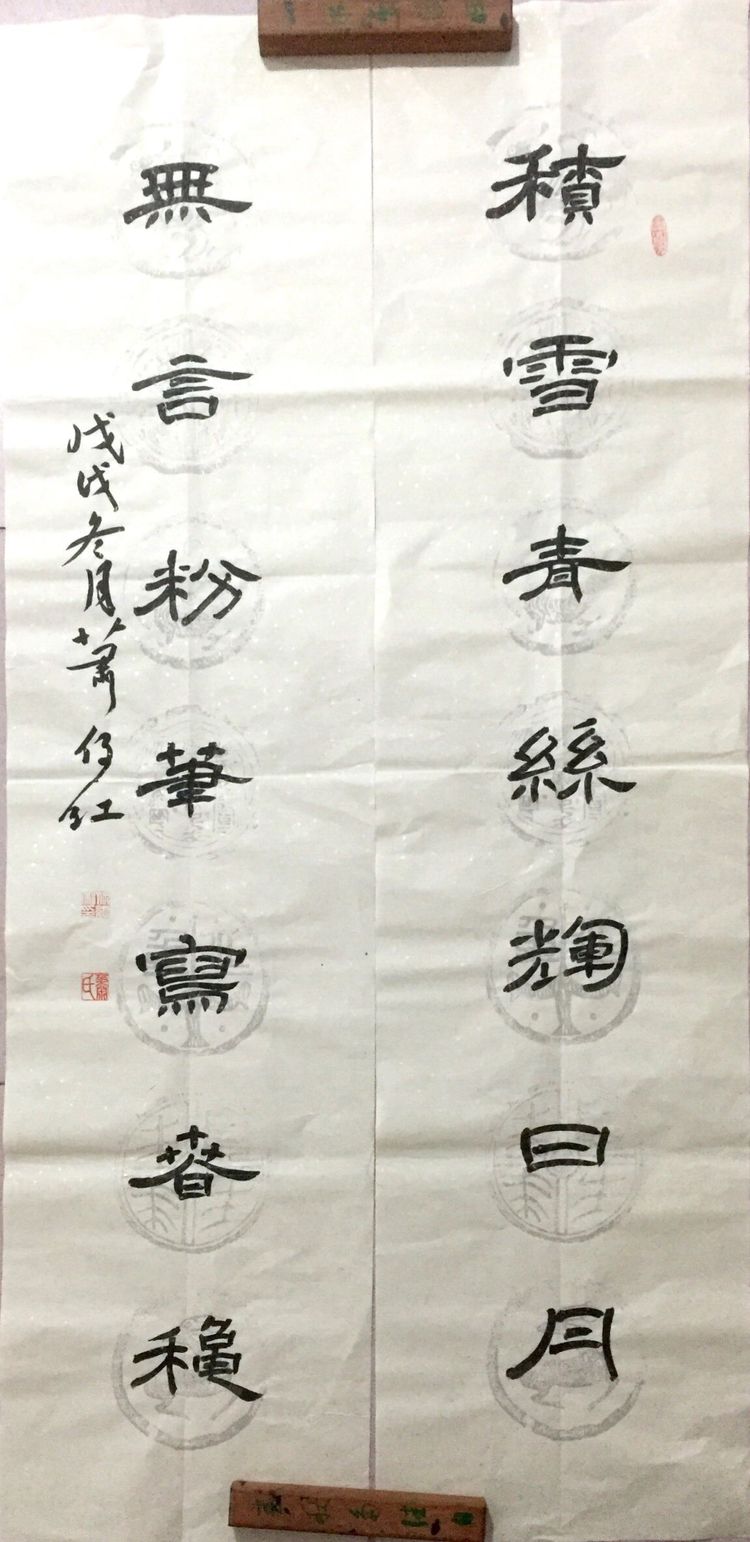 積雪青絲輝日月
無言粉筆寫春穐
戊戌冬月蕭傳紅